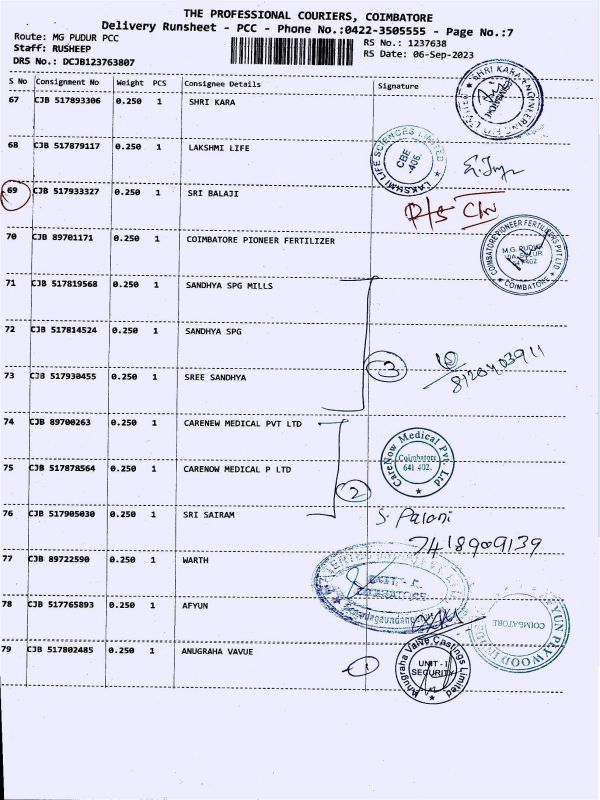 THE PROFESSIONAL COURIERS, COIMBATORE
Delivery Runsheet - PCC - Phone No.:0422-3505555 - Page No.:7
Route: MG PUDUR PCC
RS No.: 1237638
Staff: RUSHEEP
RS Date: 06-Sep-2023
DRS No.: DCJB123763807
S No Consignment No Weight PCS Consignee Details Signature
67 CJB 517893306 0.250 1 SHRI KARA
68 CJB 517879117 0.250 1 LAKSHMI LIFE
LAKSHMI LIFE SCIENCES LIMITED
CBE
-406.
69 CJB 517933327 0.250 1 SRI BALAJI
70 CJB 89701171 0.250 1 COIMBATORE PIONEER FERTILIZER
COIMBATORE PIONEER FERTILIZERS PVT LTD
M.G. PUDUR
COIMBATORE
71 CJB 517819568 0.250 1 SANDHYA SPG MILLS
72 CJB 517814524 0.250 1 SANDHYA SPG
3
73 CJB 517930455 0.250 1 SREE SANDHYA
74 CJB 89700263 0.250 1 CARENEW MEDICAL PVT LTD
CareNow Medical Pvt. Ltd
Coimbatore
641 402.
75 CJB 517878564 0.250 1 CARENOW MEDICAL P LTD
2
76 CJB 517905030 0.250 1 SRI SAIRAM
S. Palani
7418909139
77 CJB 89722590 0.250 1 WARTH
78 CJB 517765893 0.250 1 AFYUN
COIMBATORE
79 CJB 517802485 0.250 1 ANUGRAHA VAVUE
1
Anugraha Valve Castings Limited
UNIT - I
SECURITY